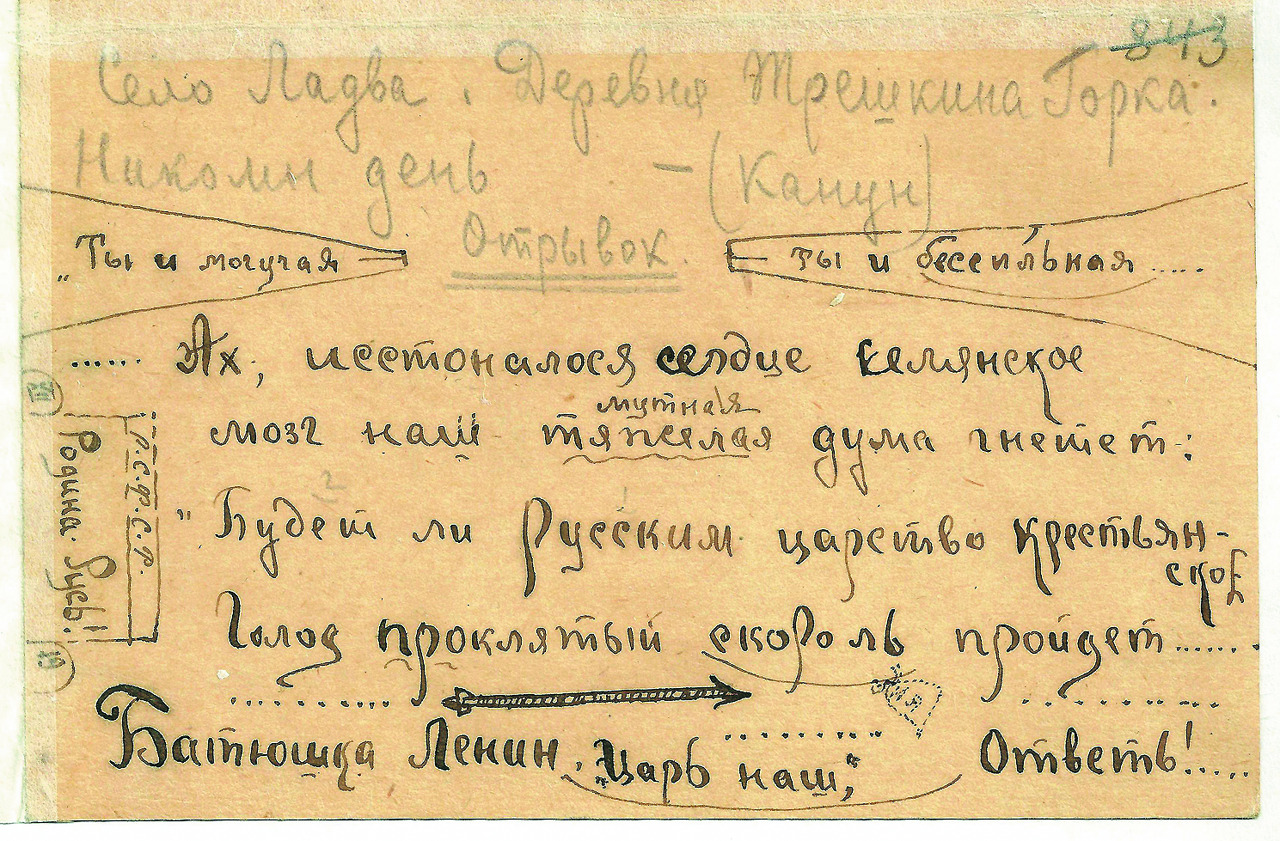 843
Село Ладва. Деревня Трешкина Горка.
Николин день — (Канун)
Отрывок.
„Ты и могучая — — ты и бессильная.....
...... Ах, исстоналося сердце селянское
мутная
мозг наш тяжелая дума гнетет:
"Будет ли Русским царство крестьян-
ское
Голод проклятый скороль пройдет......
Батюшка Ленин, "Царь наш," Ответь!.....
Р.С.Ф.С.Р.
Родина Русь!
VII
19